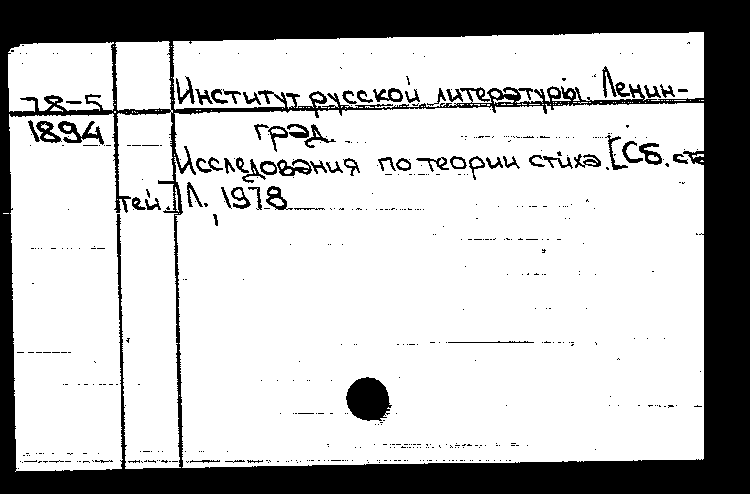 78-5 Институт русской литературы. Ленин-
1894 град.
Исследования по теории стиха. [Сб. ста
тей.] Л., 1978